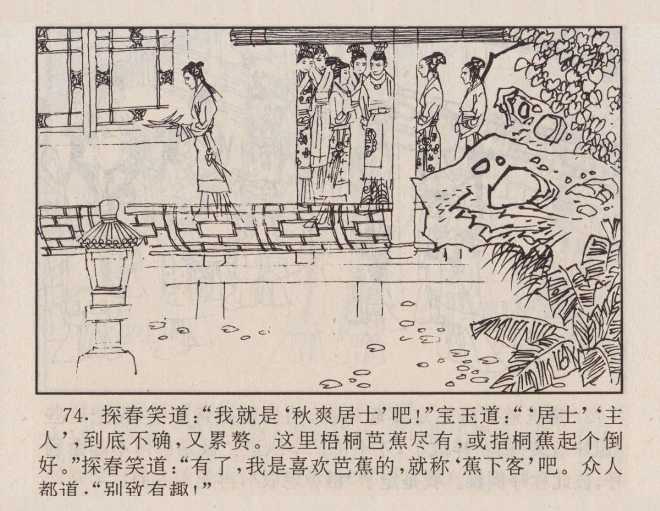 74. 探春笑道:“我就是‘秋爽居士’吧!”宝玉道:“‘居士’‘主
人’,到底不确,又累赘。这里梧桐芭蕉尽有,或指桐蕉起个倒
好。”探春笑道:“有了,我是喜欢芭蕉的,就称‘蕉下客’吧。众人
都道:“别致有趣!”